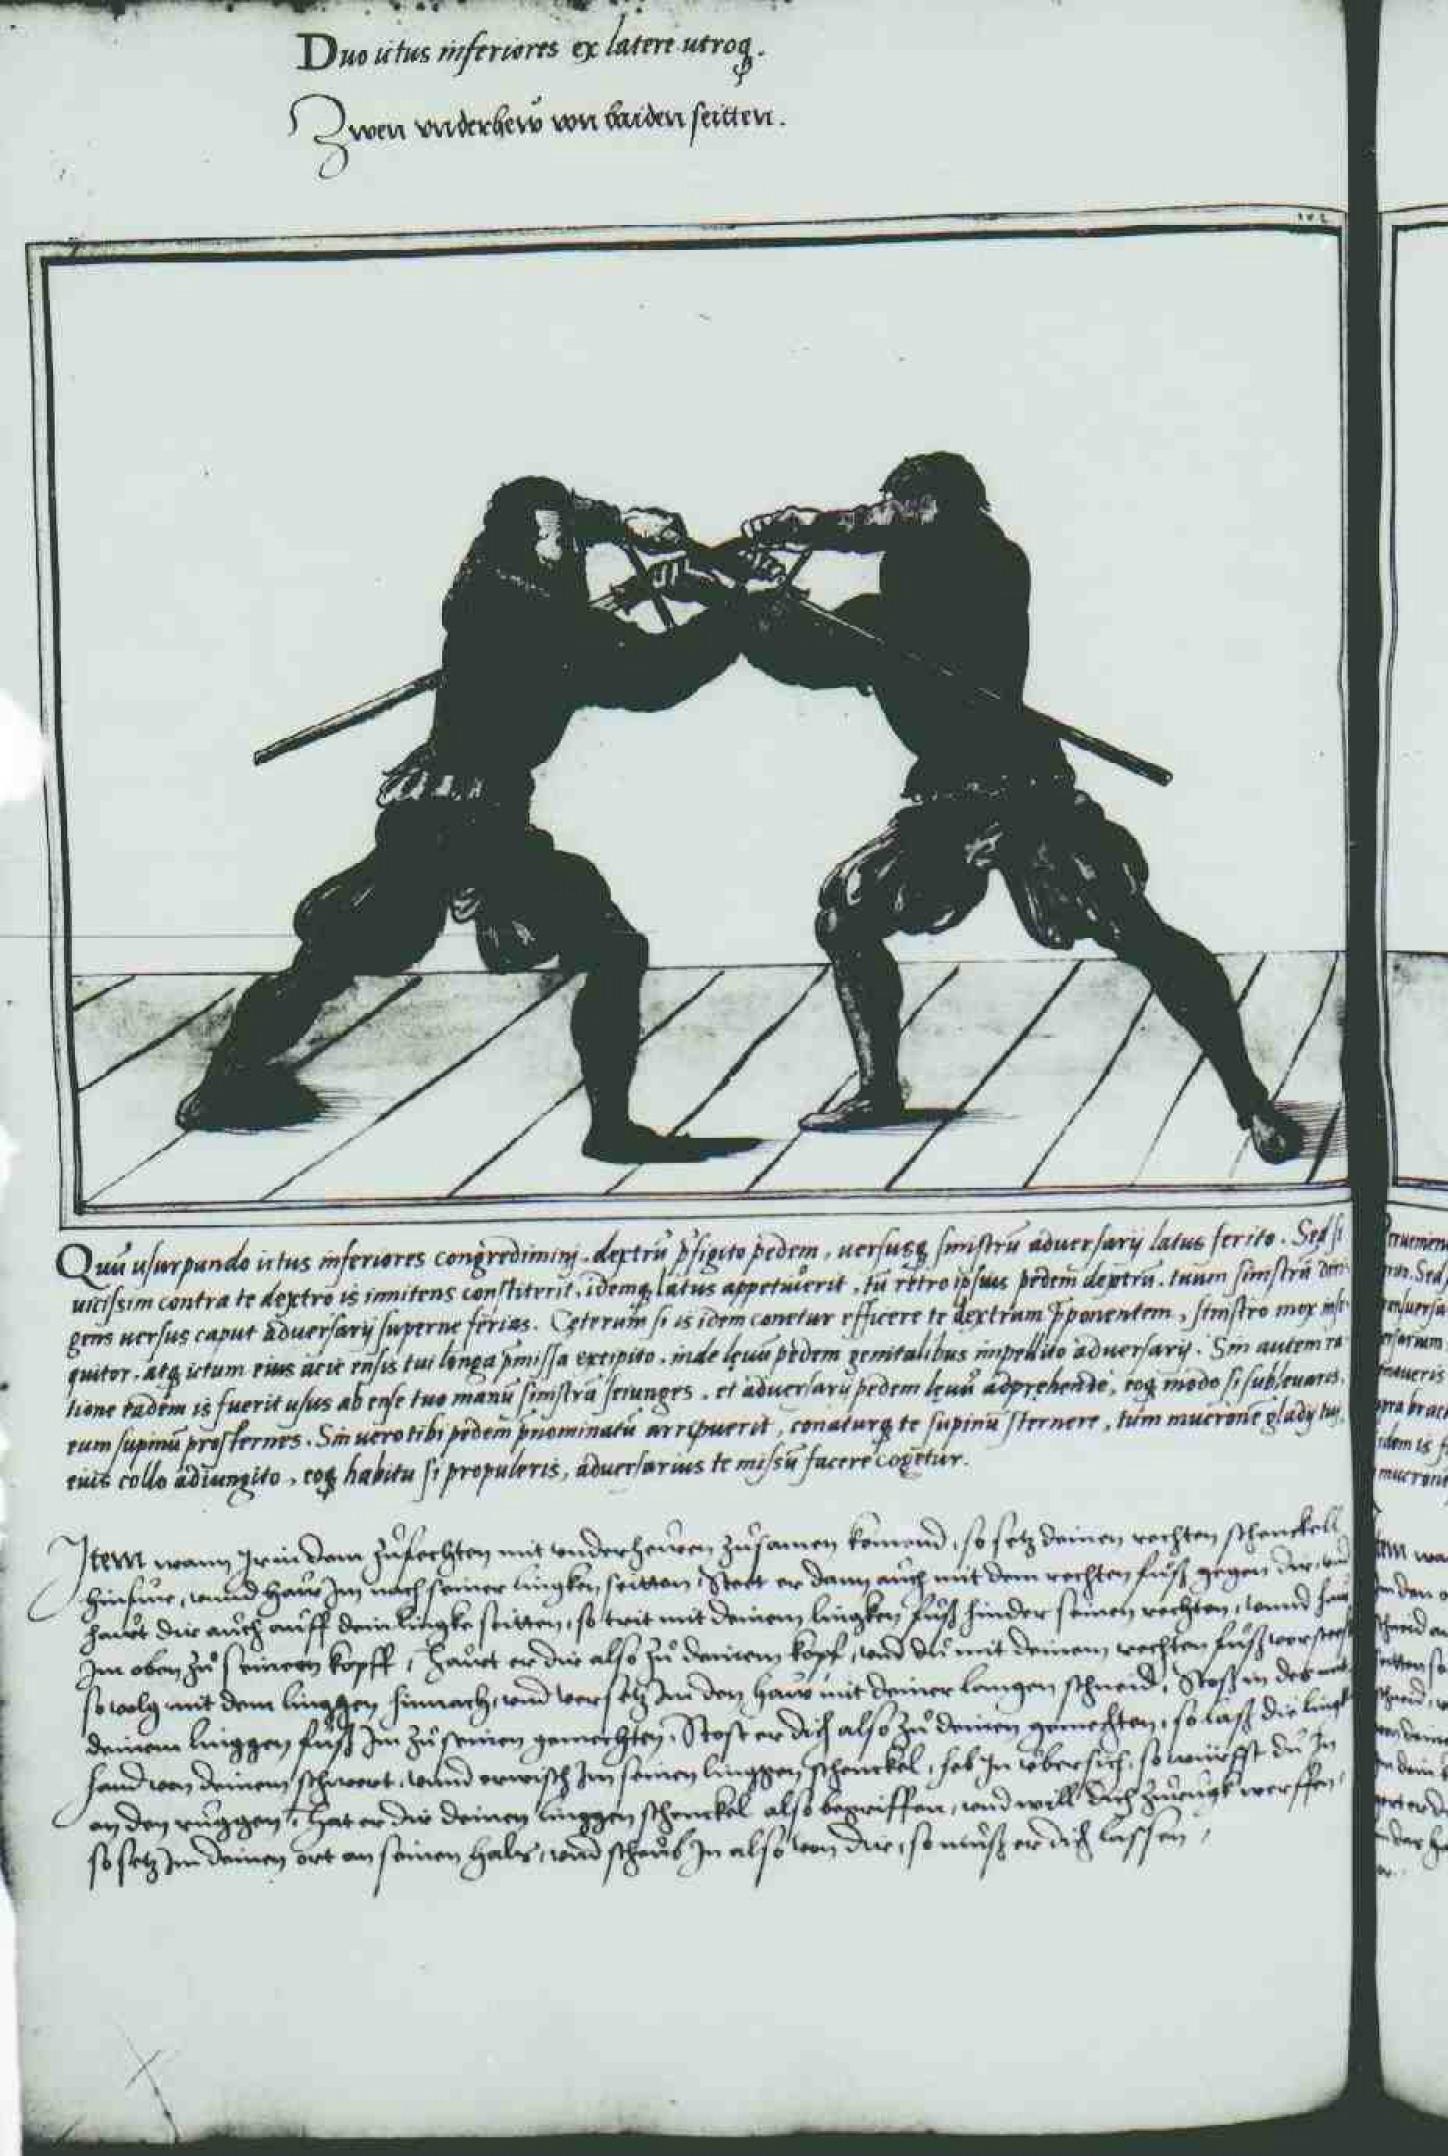 Duo ictus inferiores ex latere utroq̨.
Zwen vnderhew von baiden seitten.
Quũ usurpando ictus inferiores congredimini, dextrũ p̃figito pedem, uersusq̨ sinistrũ aduersarij latus ferito. Sed si
uicissim contra te dextro is innitens constiterit, idemq̨ latus appetuerit, tũ retro ipsius pedem dextrũ, tuum sinistrũ
gens uersus caput aduersarij superne ferias. Cęterum si is idem conetur efficere te dextrum p̃ponentem, sinistro mox
quitor, atq̨ ictum eius acie ensis tui longa p̃missa excipito, inde lęuũ pedem genitalibus impellito aduersarij. Sin autem ra
tione eadem is fuerit usus ab ense tuo manũ sinistrã seiunges, et aduersarij pedem lęuũ adprehende, eoq̨ modo si subleuaris,
eum supinũ prosternes. Sin uero tibi pedem p̃nominatũ arripuerit, conaturq̨ te supinũ sternere, tum mucronẽ gladij tuj
eius collo adiungito, eoq̨ habitu si propuleris, aduersarius te missũ facere cogetur.
Item wann Ir in dem zůfechten mit vnderhewen zůsamen komend, so setz deinen rechten schenckell
hinfür, vnnd haw Im nach seiner lingken seitten, Steet er dann auch mit dem rechten fůß gegen dir, vnd
hawt dir auch auff dein lingke seitten, so trit mit deinem lingken fůß hinder seinen rechten, vnnd haw
Im oben zů seinem kopff, Hawt er dir also zů deinem kopf, vnd du mit deinem rechten fůß vorsteest
so volg mit dem linggen hinnach, vnd versetz Im den haw mit deiner langen schneid, Stoß in des mit
deinem linggen fůß Im zů seinen gemechten, Stost er dich also zů deinen gemechten, so laß die lingk
hand von deinem schwert, vnnd erwisch Im seinen linggen schenckel, heb In übersich, so würffst du In
an den ruggen, Hat er dir deinen linggen schenckel also begriffen, vnd will dich zurugk werffen,
so setz Im deinen ort an seinen hals, vnd scheub In also von dir, so můß er dich lassen,